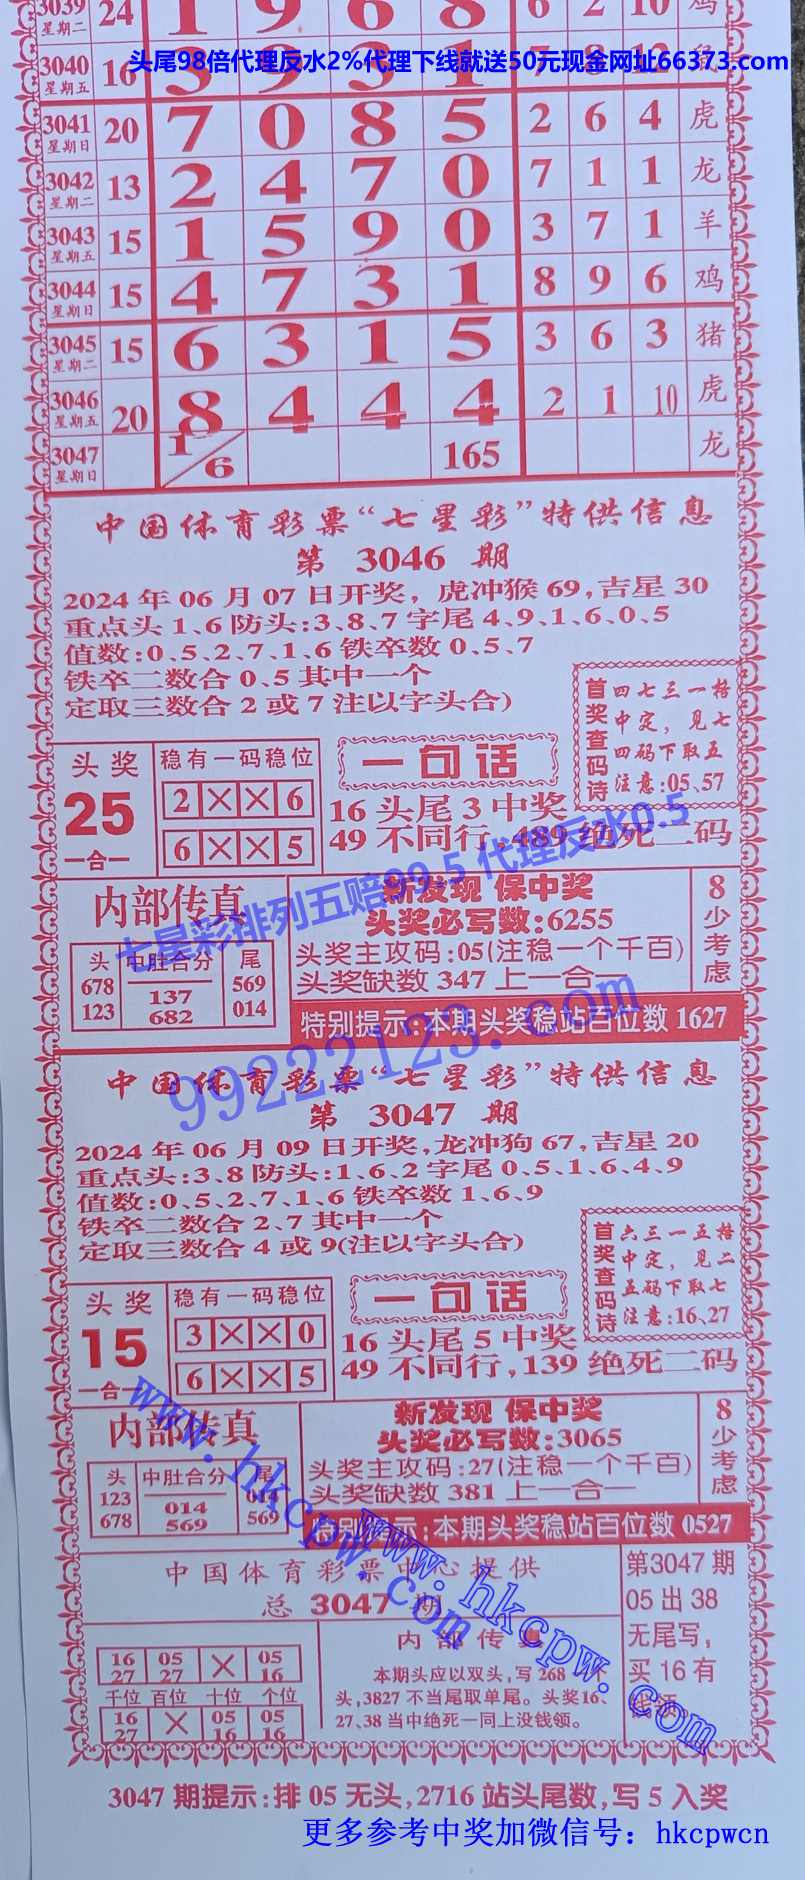 3039 星期二 24 1 9 6 8 6 2 10 鸡
头尾98倍代理反水2%代理下线就送50元现金网址66373.com
3040 星期五 16 3 9 3 1 7 8 12 鼠
3041 星期日 20 7 0 8 5 2 6 4 虎
3042 星期二 13 2 4 7 0 7 1 1 龙
3043 星期五 15 1 5 9 0 3 7 1 羊
3044 星期日 15 4 7 3 1 8 9 6 鸡
3045 星期二 15 6 3 1 5 3 6 3 猪
3046 星期五 20 8 4 4 4 2 1 10 虎
3047 星期日 1/6 165 龙
中国体育彩票“七星彩”特供信息
第 3046 期
2024年06月07日开奖，虎冲猴69,吉星30
重点头1、6防头:3、8、7字尾4、9、1、6、0、5
值数:0、5、2、7、1、6铁卒数0、5、7
铁卒二数合0、5其中一个
定取三数合2或7注以字头合)
首奖查码诗
四七三一格
中定，见七
四码下取五
注意:05、57
头奖
25
一合一
稳有一码稳位
2××6
6××5
一句话
16头尾3中奖
49不同行,489绝死二码
七星彩排列五赔99.5 代理反水0.5
内部传真
头 中胜合分 尾
678 137 569
123 682 014
新发现 保中奖
头奖必写数:6255
头奖主攻码:05(注稳一个千百)
头奖缺数347上一合一
8少考虑
特别提示:本期头奖稳站百位数1627
99222123.com
中国体育彩票“七星彩”特供信息
第 3047 期
2024年06月09日开奖,龙冲狗67,吉星20
重点头:3、8防头:1、6、2字尾0、5、1、6、4、9
值数:0、5、2、7、1、6铁卒数1、6、9
铁卒二数合2、7其中一个
定取三数合4或9(注以字头合)
首奖查码诗
六三一五格
中定，见二
五码下取七
注意:16、27
头奖
15
一合一
稳有一码稳位
3××0
6××5
一句话
16头尾5中奖
49不同行,139绝死二码
www.hkcpw.com
内部传真
头 中肚合分 尾
123 014 014
678 569 569
新发现 保中奖
头奖必写数:3065
头奖主攻码:27(注稳一个千百)
头奖缺数381上一合一
8少考虑
特别提示:本期头奖稳站百位数0527
www.hkcpw.com
中国体育彩票中心提供
总 3047 期
16 05 × 05
27 27 16
千位 百位 十位 个位
16 × 05 05
27 16 16
内部传真
本期头应以双头,写268 个
头,3827不当尾取单尾。头奖16、
27、38当中绝死一同上没钱领。
第3047期
05出38
无尾写，
买16有
钱领。
3047期提示:排05无头,2716站头尾数,写5入奖
更多参考中奖加微信号：hkcpwcn